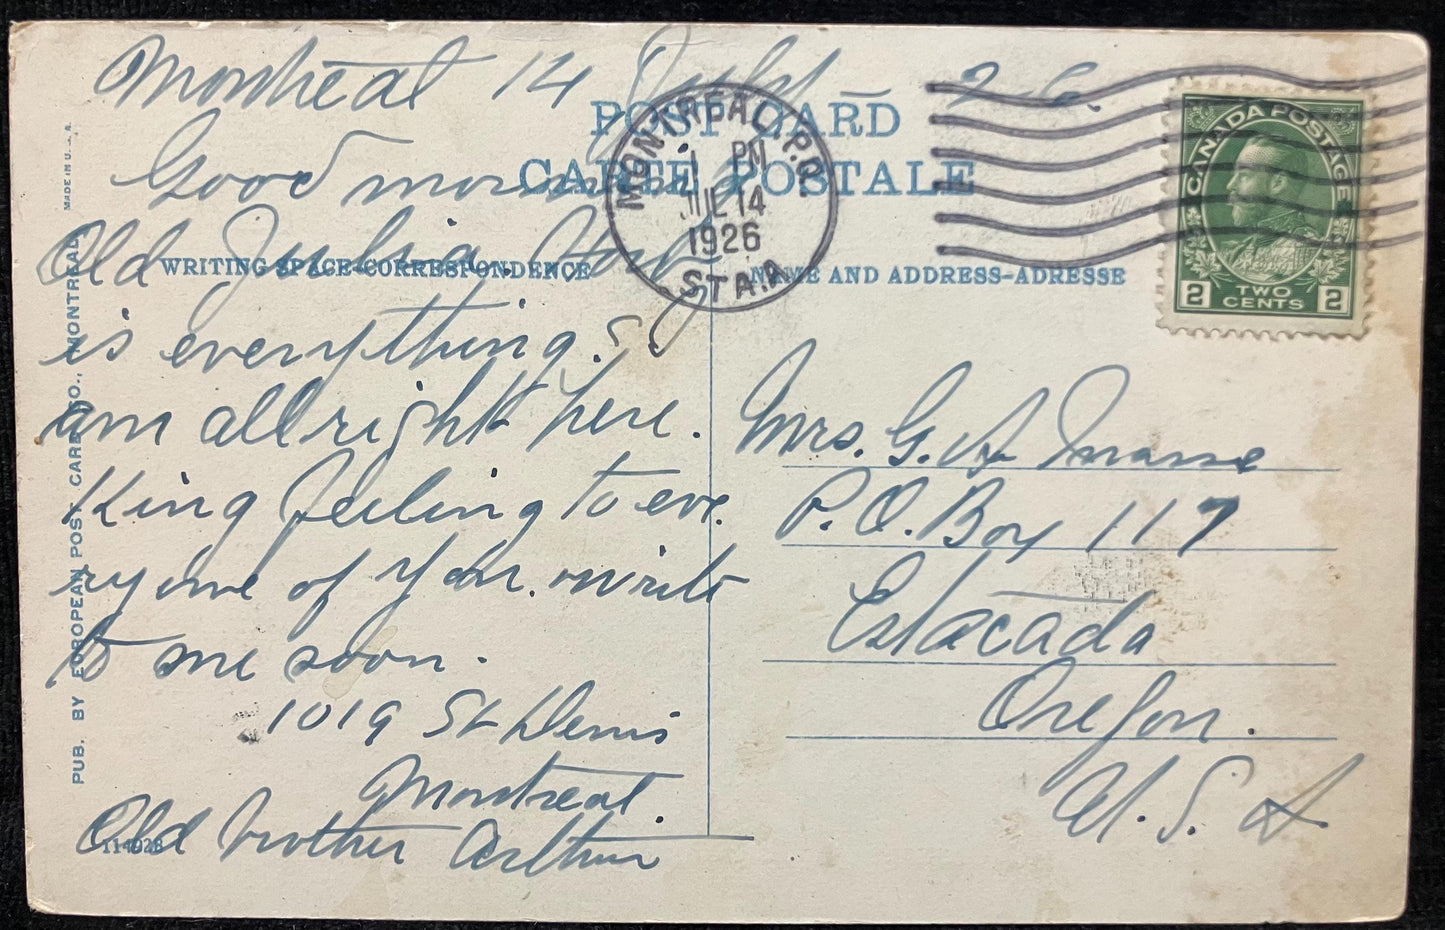 Montreal 14 July - 26.
POST CARD
CARTE POSTALE
Good morning
Old Julia How
WRITING SPACE-CORRESPONDENCE
NAME AND ADDRESS-ADRESSE
is everything. I
am all right here.
King feeling to eve.
ryone of you. write
to me soon.
1019 St Denis
Montreal.
Old brother Arthur
11492B
MADE IN U.S.A.
PUB. BY EUROPEAN POST CARD CO., MONTREAL
MONTREAL, P.Q.
1 PM
JUL 14
1926
STA. A
CANADA POSTAGE
2 TWO CENTS 2
Mrs. G. A
P. O. Box 117
Estacada
Oregon.
U. S. A